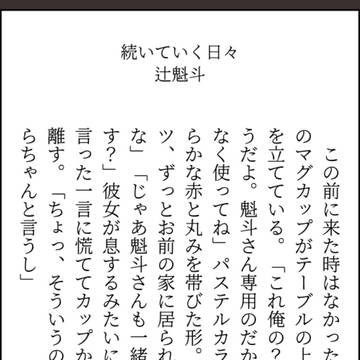 続いていく日々
辻魁斗
この前に来た時はなかった
のマグカップがテーブルの上
を立てている。「これ俺の？
うだよ。魁斗さん専用のだか
なく使ってね」パステルカラ
らかな赤と丸みを帯びた形。
ツ、ずっとお前の家に居られ
な」「じゃあ魁斗さんも一緒
す？」彼女が息するみたいに
言った一言に慌ててカップか
離す。「ちょっ、そういうの
らちゃんと言うし」